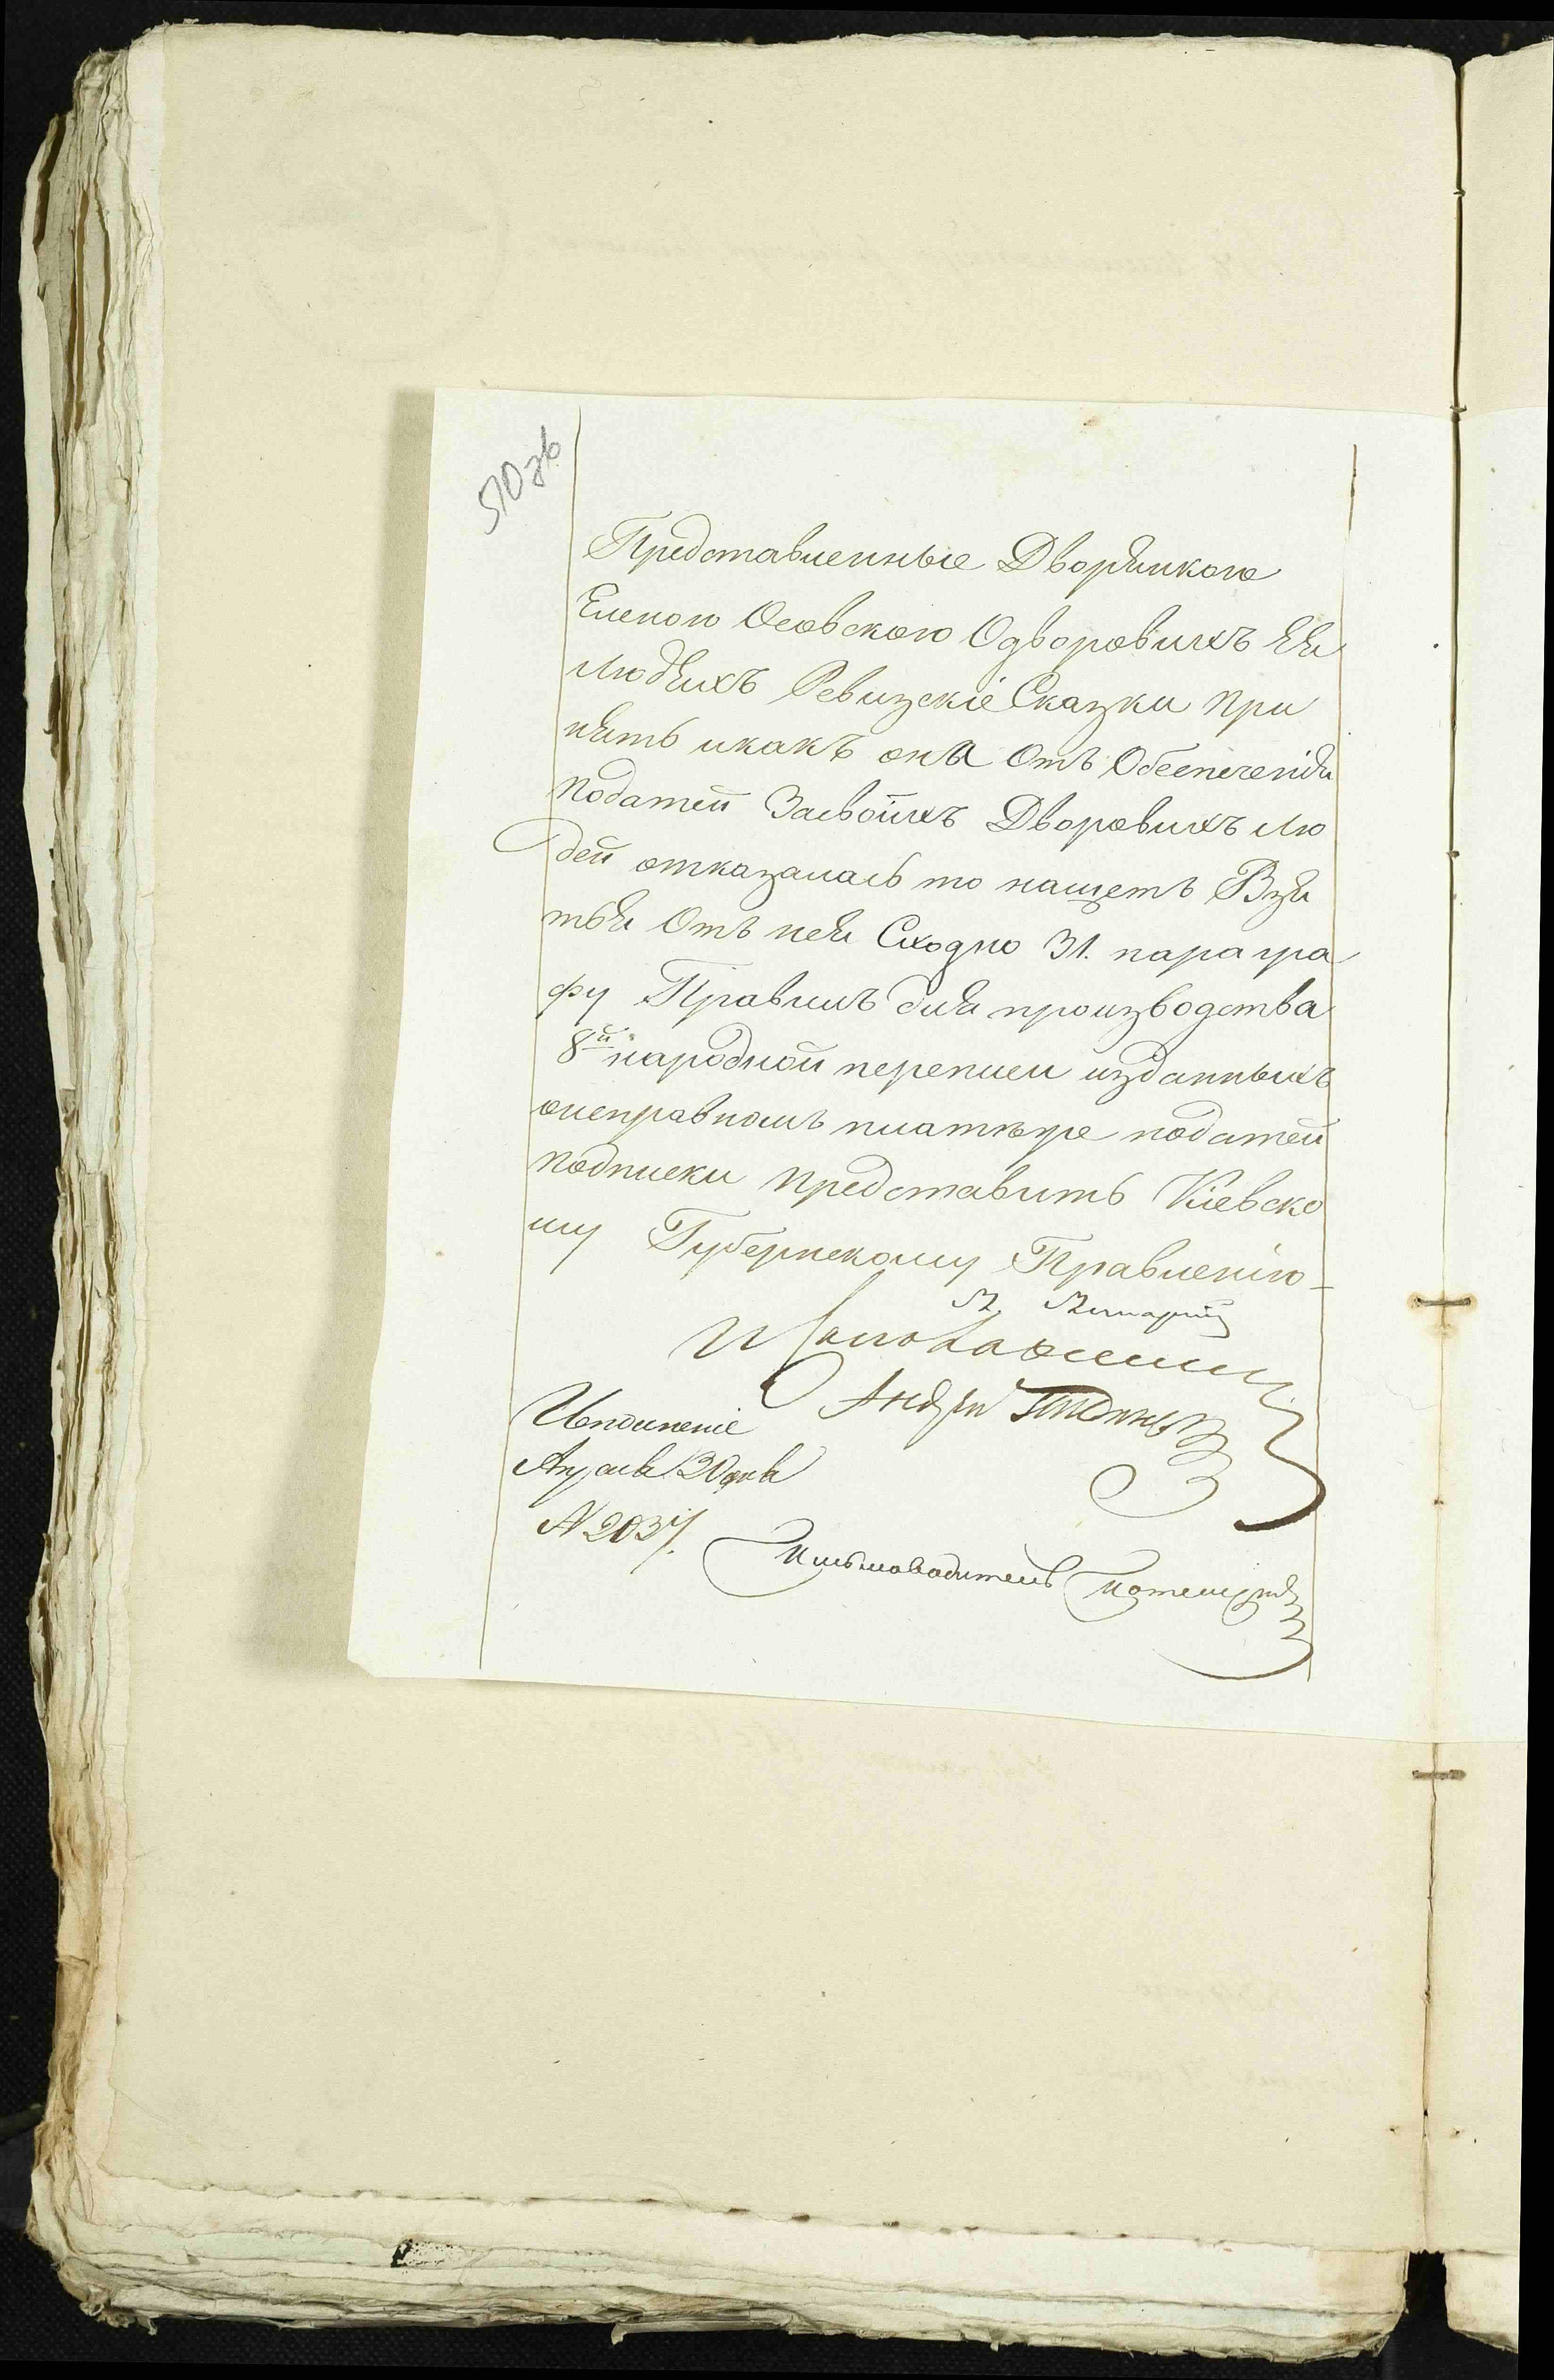 510 зв
Представленные Дворянкою
Еленою Осовскою Одворовихъ Ея
Людяхъ Ревизскіе Сказки при
нять икакъ она Отъ Обеспеченія
податей Засвоихъ Дворовихъ Лю
дей отказалась то нащетъ Взя
тья Отъ нея Сходно 31. парагра
фу Правилъ для производства
8й народной переписи изданныхъ
оисправномъ платѣже податей
подписки представить Кіевско
му Губернскому Правленію
Андрей
Исполненіе
Апреля 30 дня
N 2037.
Письмоводитель